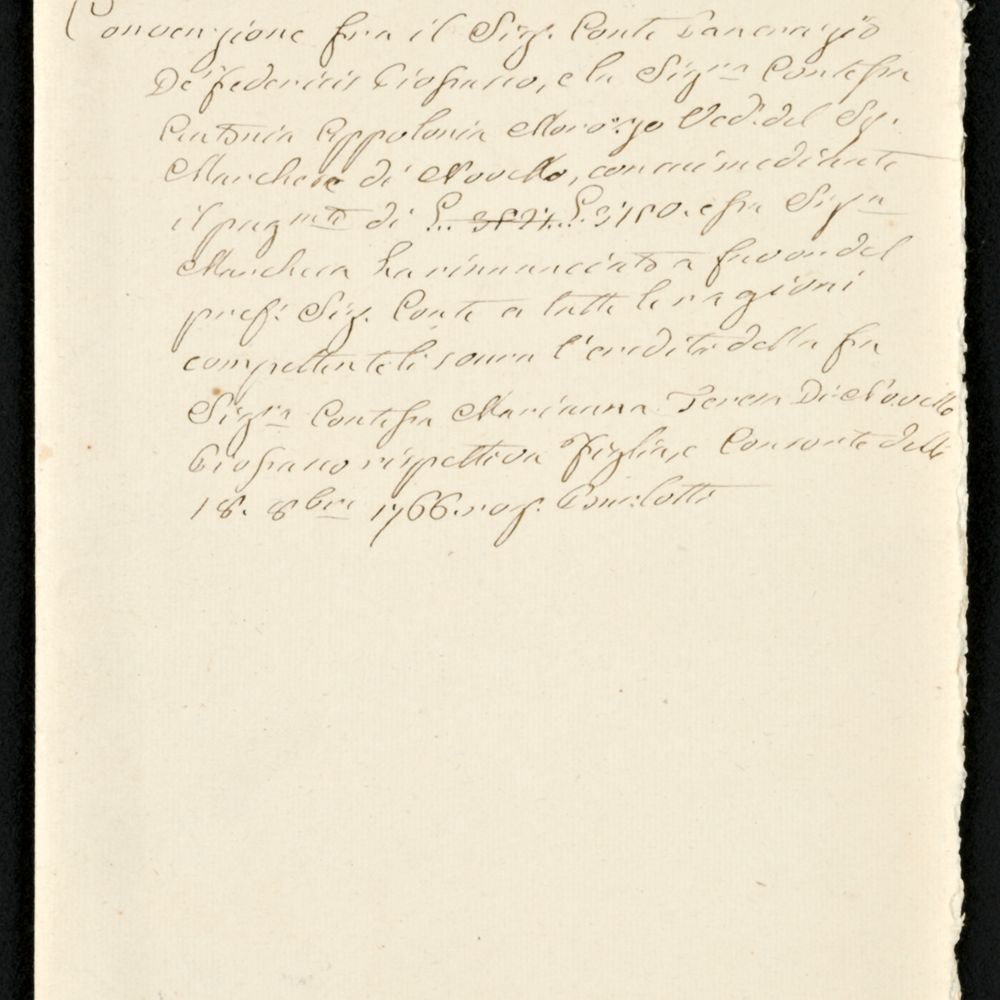 Convenzione fra il Sigr. Conte Pancrazio
De' Federicis Ciossano, e la Sigra Contessa
Antonia Appolonia Morozzo Ved.a del Sigr.
Marchese di Novello, con cui mediante
il pagmto di L. L. 3150. essa Sigra
Marchesa ha rinunciato a favor del
pref.o Sigr. Conte a tutte le ragioni
competenteli sovra l'eredità della fu
Sigra Contessa Marianna Teresa Di Novello
Ciossano rispettiva Figlia, e Consorte delli
18. 8bre 1766. rog.